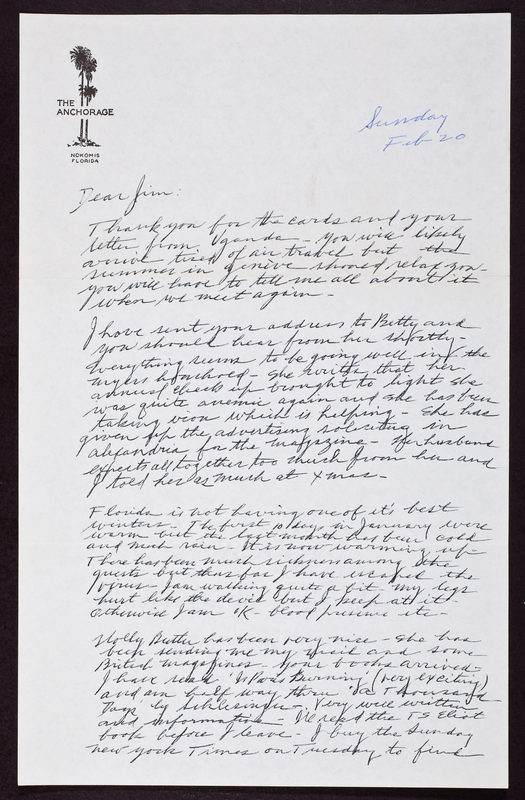 THE
ANCHORAGE
NOKOMIS
FLORIDA
Sunday
Feb 20
Dear Jim:
Thank you for the cards and your
letter from Uganda - You will likely
arrive tired of air travel but the
summer in Genève should relax you -
you will have to tell me all about it
when we meet again -
I have sent your address to Betty and
you should hear from her shortly -
Everything seems to be going well in the
household - She writes that her
annual check up brought to light she
was quite anemic again and she has been
taking iron which is helping - She has
given up the advertising soliciting in
Alexandria for the magazine - Her husband
expects all together too much from her and
I told her as much at Xmas -
Florida is not having one of it's best
winters - The first 10 days in January were
warm but the last month has been cold
and much rain - It is now warming up -
There has been much sickness among the
guests but thus far I have escaped the
virus - I am walking quite a bit - my legs
hurt like the devil but I keep at it
Otherwise I am OK - blood pressure etc -
Molly Butler has been very nice - She has
been sending me my mail and some
British magazines - Your books arrived -
I have read 'Is Paris Burning' (very exciting)
and am half way thru 'A Thousand
Days' by Schlesinger - Very well written
and information - I'll read the TS Eliot
book before I leave - I buy the Sunday
New York Times on Tuesday to find